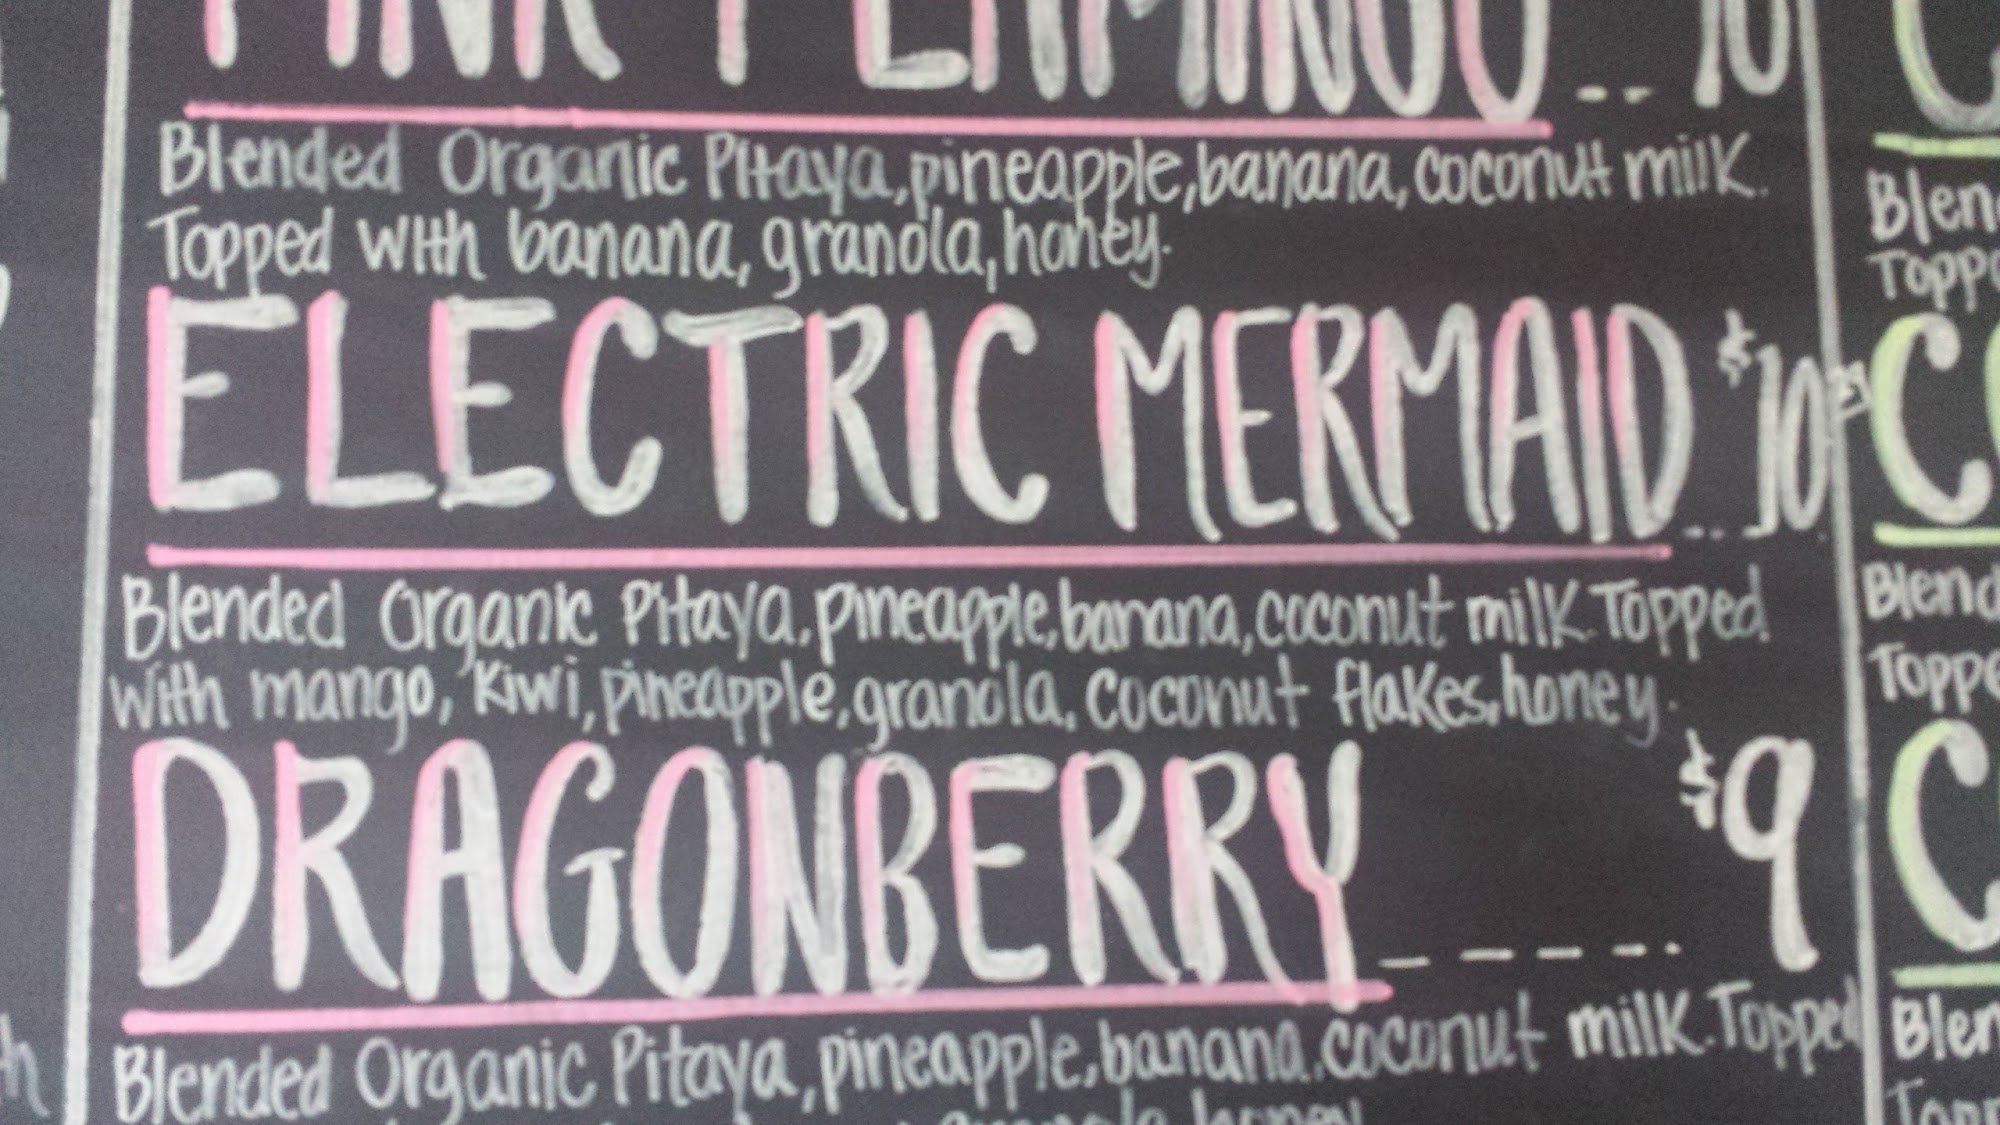 PINK FLAMINGO -- 10
Blended Organic Pitaya, pineapple, banana, coconut milk.
Topped with banana, granola, honey.
ELECTRIC MERMAID -- $10
Blended Organic Pitaya, pineapple, banana, coconut milk. Topped
with mango, kiwi, pineapple, granola, coconut flakes, honey.
DRAGONBERRY ----- $9
Blended Organic Pitaya, pineapple, banana, coconut milk. Topped
granola, honey